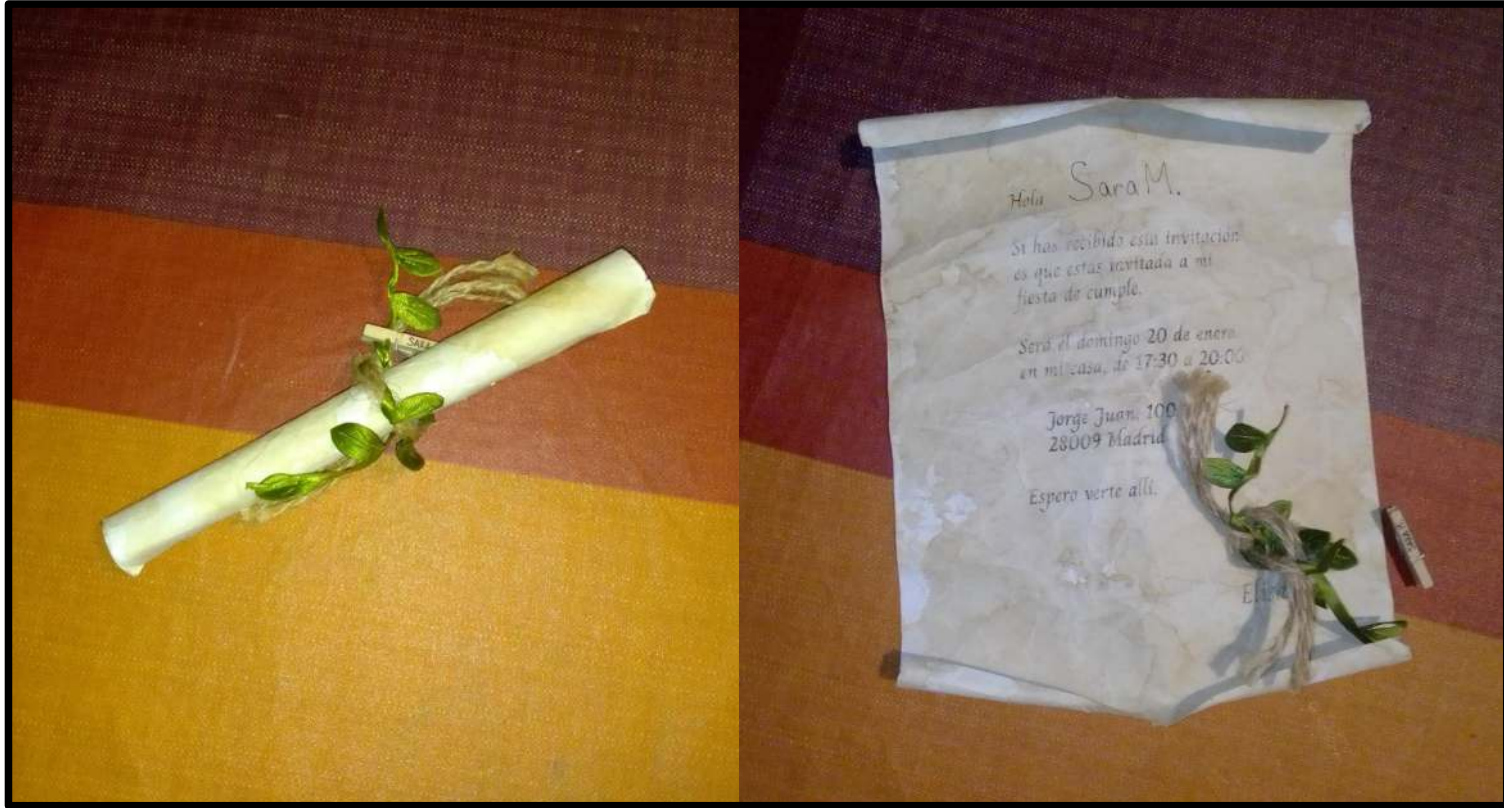 SARA
Hola Sara M.
Si has recibido esta invitación
es que estás invitada a mi
fiesta de cumple.
Será el domingo 20 de enero
en mi casa, de 17:30 a 20:00
Jorge Juan, 100
28009 Madrid
Espero verte allí.
SARA M.